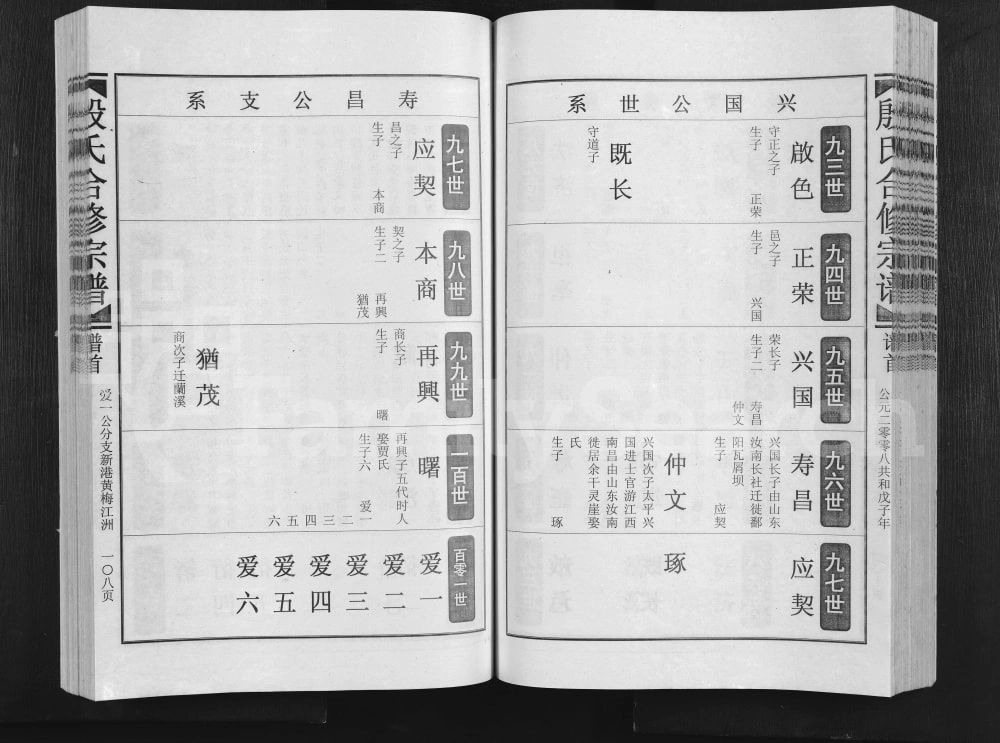 殷氏合修宗谱
谱首
公元二零零八共和戊子年
兴国公世系
九三世
啟色
守正之子
生子 正荣
既长
守道子
九四世
正荣
邑之子
生子 兴国
九五世
兴国
荣长子
生子二 寿昌
仲文
九六世
寿昌
兴国长子由山东
汝南长社迁徙鄱
阳瓦屑坝
生子 应契
仲文
兴国次子太平兴
国进士官游江西
南昌由山东汝南
徙居余干灵崖娶
氏
生子 琢
九七世
应契
琢
寿昌公支系
九七世
应契
昌之子
生子 本商
九八世
本商
契之子
生子二 再興
猶茂
九九世
再興
商长子
生子 曙
猶茂
商次子迁蘭溪
一百世
曙
再興子五代时人
娶贾氏
生子六 爱一
二三四五六
百零一世
爱一
爱二
爱三
爱四
爱五
爱六
殷氏合修宗谱
谱首
爱一公分支新港黄梅江洲
一〇八页